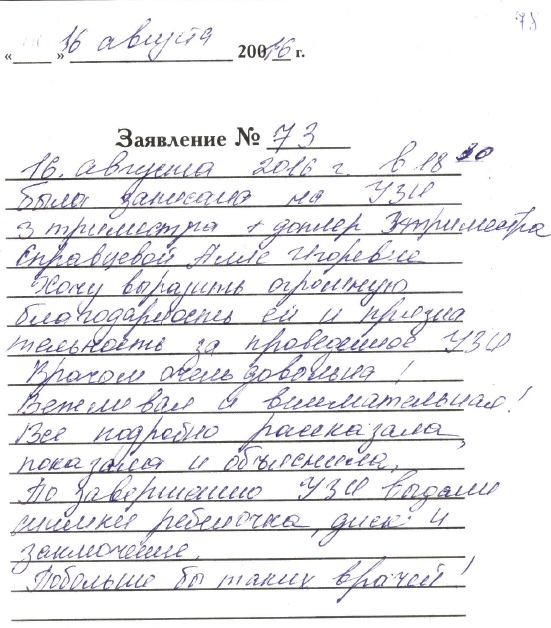 75
« » 16 августа 20016 г.
Заявление № 73
16. августа 2016 г. в 18 30
была записана на УЗИ
3 триместра + доплер 3 триместра
Справцевой Алле Игоревне
Хочу выразить огромную
благодарность ей и призна
тельность за проведенное УЗИ
Врачом очень довольна!
Вежливая и внимательная!
Все подробно рассказала,
показала и объяснила.
По завершению УЗИ выдали
снимки ребеночка, диск и
заключение.
Побольше бы таких врачей!